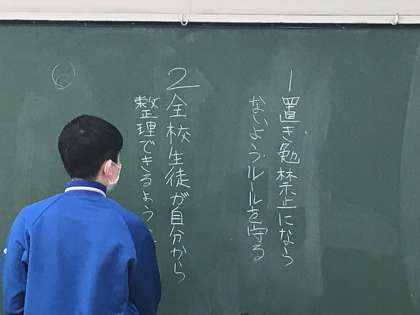 1置き勉禁止になら
ないようルールを守る
2全校生徒が自分から
整理できるように